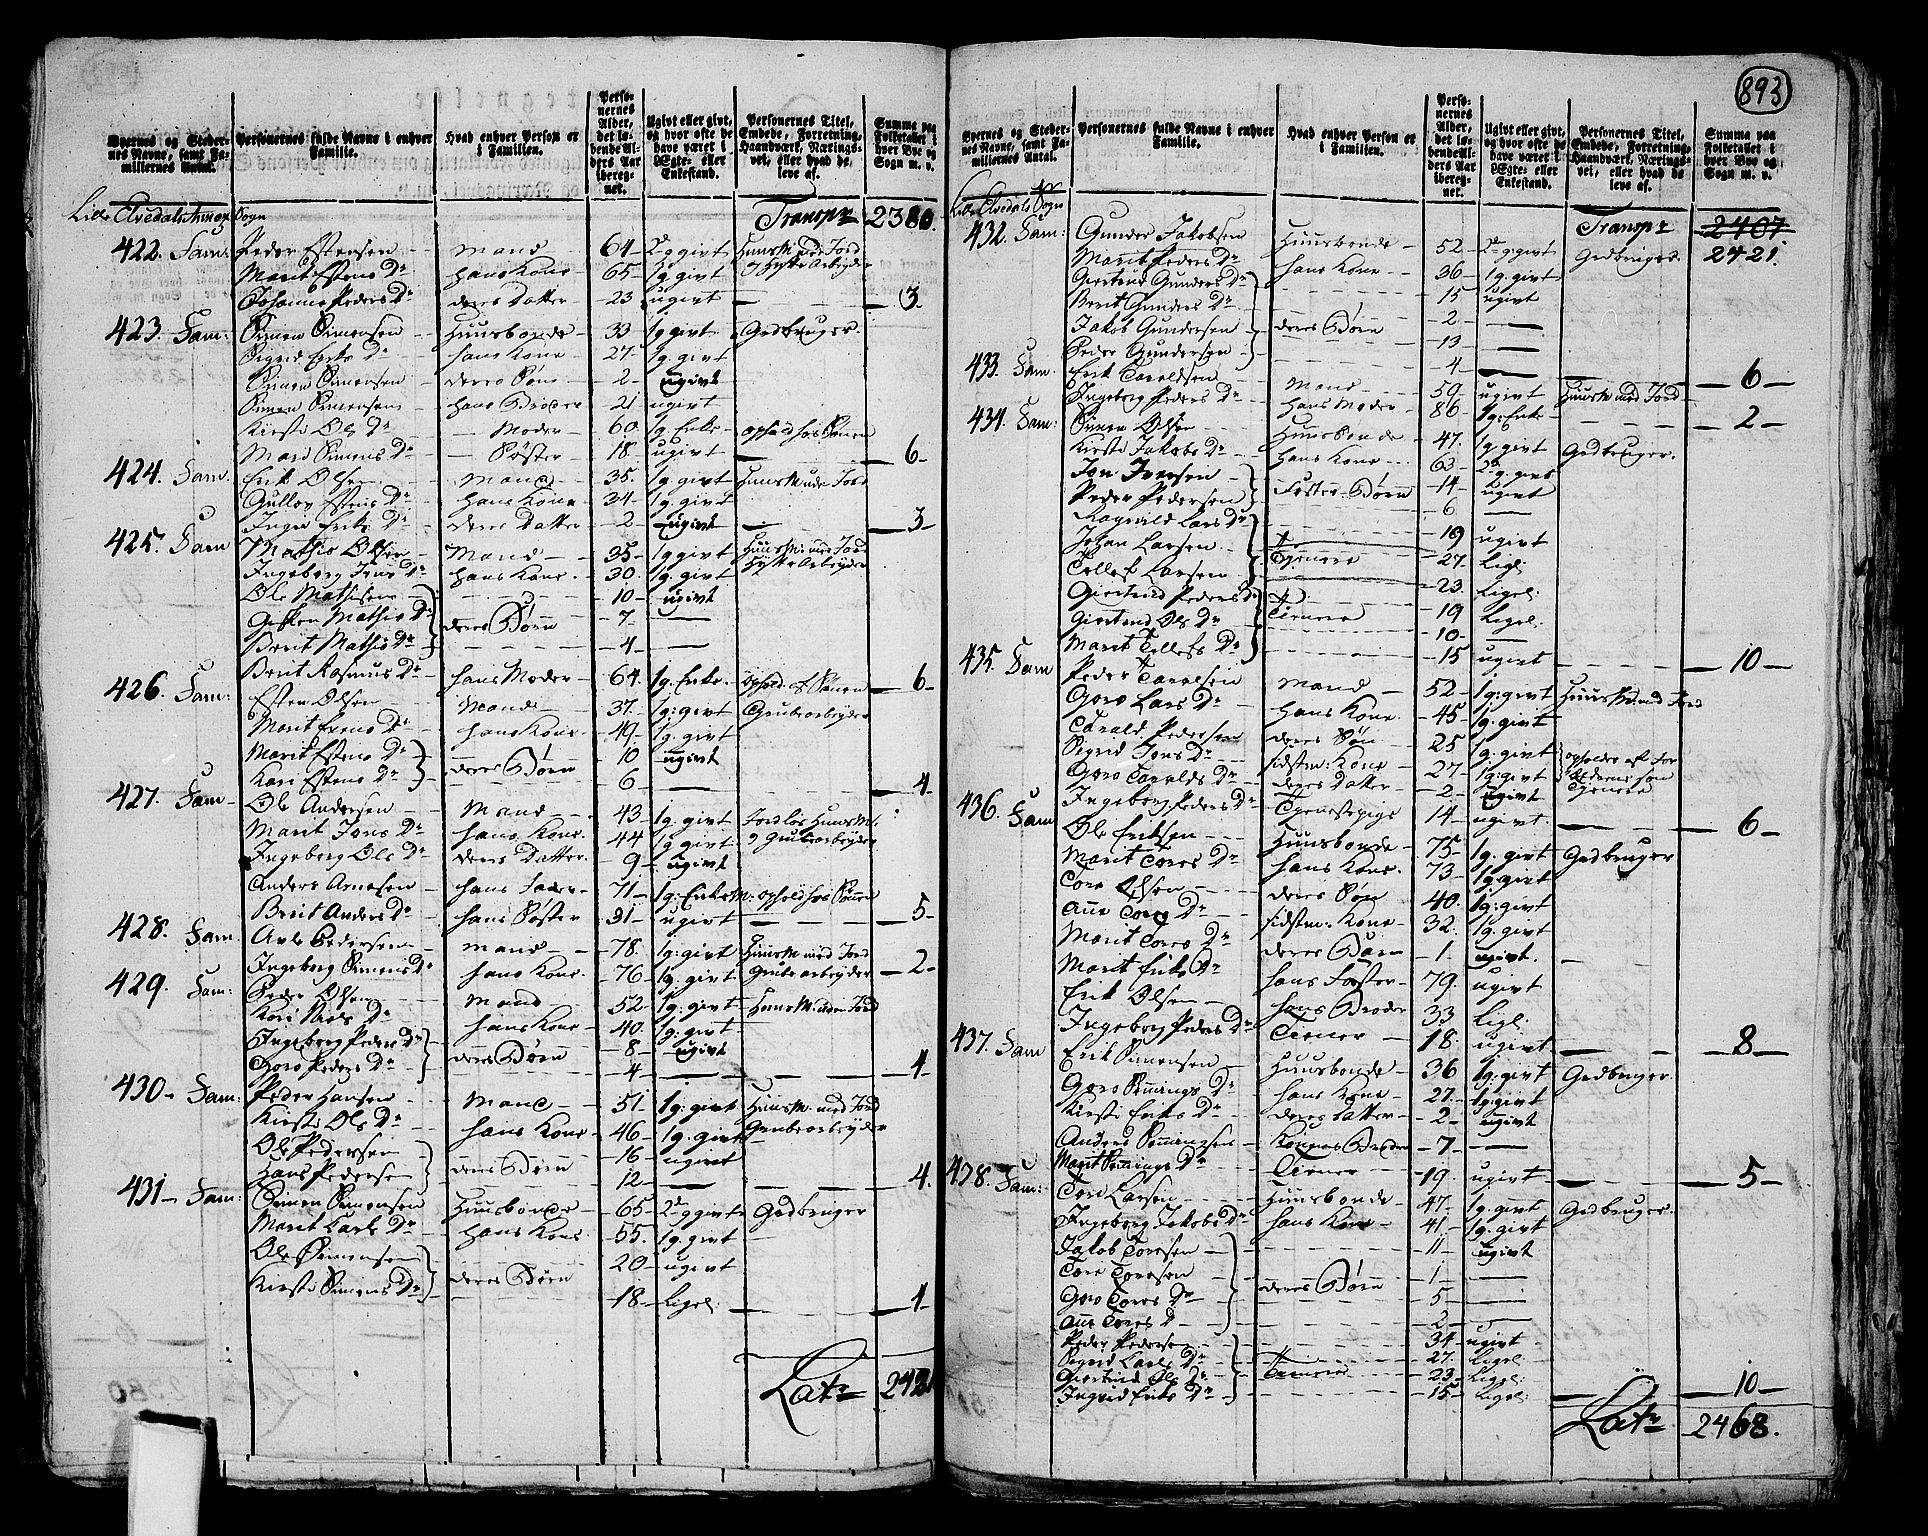 893
Byernes og Stedernes Navne, samt Familliernes Antal.
Personernes fulde Navne i enhver Familie.
Hvad enhver Person er i Familien.
Personernes Alder, det løbende Alders Aar iberegnet.
Ugivt eller givt, og hvor ofte de have været i Ægte- eller Enkestand.
Personernes Titel, Embede, Forretning, Haandværk, Næringsvei, eller hvad de leve af.
Summa paa Folketallet i hver Bye og Sogn m. v.
Lille Elvedals Annex Sogn Transpr 2380.
422. Fam: Peder Estensen Mand 64 2d g givt Huusm med Jord
Marit Estens Dr hans Kone 65 1g. givt og Hytte Arbeyder
Johanne Peders Dr deres Datter 23 ugivt 3
423. Fam: Simen Simensen Huusbonde 33 1g givt Gedbruger.
Sigrid Eriks Dr hans Kone 27 1g. givt
Simen Simensen deres Søn 2 ugivt
Simen Simensen hans Broder 21 ugivt
Kirsti Ols Dr Moder 60 1g. Enke ophold hos Sønen
Mari Simens Dr Søster 18 ugivt 6
424. Fam. Erik Olsen Mand 35. 1g givt Huusm uden Jord
Gullov Estens Dr hans Kone 34 1g givt
Inger Eriks Dr deres Datter 2 ugivt 3
425. Fam Mathis Olsen Mand 35 1g givt Huusm. med Jord
Ingeborg Jens Dr hans Kone. 30. 1g. givt Hytte Arbeyder
Ole Mathisen 10 ugivt
Mathis Dr deres Børn 7
Berit Mathis Dr 4
Berit Rasmus Dr hans Moder 64. 1g. Enke. ophold af Sønen 6
426. Fam: Esten Olsen Mand 37. 1g: givt Grubearbeyder
Marit Dr hans Kone 49 1g. givt
Marit Estens Dr deres Børn 10 ugivt
Kari Estens Dr 6 4
427. Fam Ole Andersen Mand 43 1g. givt Jordløs Huusm.
Marit Jons Dr hans Kone. 44 1g givt og Grubearbeyder
Ingeborg Ols Dr deres Datter. 9 ugivt
Anders Arnesen hans Fader 71 1g: Enkem: ophold hos Sønnen
Berit Anders Dr hans Søster 31 ugivt 5
428. Fam. Pedersen Mand 78. 1g: givt Huusm med Jord
Ingeborg Simens Dr hans Kone. 76 1g givt Grubearbeyder 2
429. Fam: Peder Olsen Mand 52 1g: givt Huusm. uden Jord
Kari Nils Dr hans Kone 40. 1g. givt
Ingeborg Peders Dr deres Børn 8 ugivt
Goro Peders Dr 4 4
430 Fam: Peder Hansen Mand 51 1g: givt Huusm. med Jord
Kirsti Ols Dr hans Kone 46 1g. givt Grubearbeyder
Ole Pedersen deres Børn 16 ugivt
Hans Pedersen 12 4.
431 Fam: Simen Simensen Huusbonde 65 2d g givt Gedbruger
Marit Lars Dr hans Kone. 55. 1g. givt
Ole Simensen deres Børn 20 ugivt
Kirsti Simens Dr 18 Ligel: 4
Latr 2421
Byernes og Stedernes Navne, samt Familliernes Antal.
Personernes fulde Navne i enhver Familie.
Hvad enhver Person er i Familien.
Personernes Alder, det løbende Alders Aar iberegnet.
Ugivt eller givt, og hvor ofte de have været i Ægte- eller Enkestand.
Personernes Titel, Embede, Forretning, Haandværk, Næringsvei, eller hvad de leve af.
Summa paa Folketallet i hver Bye og Sogn m. v.
Lille Elvedals Sogn Transpr 2407
2421.
432. Fam: Gunder Jakobsen Huusbonde 52 2d g givt Gedbruger
Marit Peders Dr hans Kone 36 1g. givt
Giertrud Gunders Dr 15 ugivt
Berit Gunders Dr 2
Jakob Gundersen deres Børn 13
Peder Gundersen 4 6
433. Fam. Erik Taroldsen Mand 59 ugivt Huusm med Jord
Ingeborg Peders Dr hans Moder 86 1g: Enke 2
434. Fam: Simen Olsen Huusbonde 47. 1g givt Gedbruger.
Kirsti Jakobs Dr hans Kone 63 2d g. givt
Jon Iversen Foster Børn 14 ugivt
Peder Pedersen 6
Ragnild Lars Dr 19 ugivt
Johan Larsen Tjenere 27. Lige:
Tollef Larsen 23. Ligel:
Giertrud Peders Dr Tienere 19 Ligel:
Giertrud Ols Dr 10
Marit Tollefs Dr 15 ugivt 10
435. Fam Peder Taralsen Mand 52 1g: givt Huusm. med Jord
Goro Lars Dr hans Kone. 45 1g. givt
Tarald Pedersen deres Søn 25 1g: givt opholdes af For
Sigrid Jons Dr sidstm: Kone 27 1g: givt ældrene som
Goro Taralds Dr deres Datter 2 ugivt Tjenere
Ingeborg Peders Dr Tjenestepige 14 ugivt 6
436. Fam Ole Eriksen Huusbonde 75 1g. givt Gedbruger
Marit Tores Dr hans Kone. 73 1g. givt
Tore Olsen deres Søn 40. 1g: givt
Ane Tores Dr sidstm: Kone 32. 1g. givt
Marit Tores Dr deres Barn 1 ugivt.
Marit Eriks Dr hans Søster 79. ugivt
Erik Olsen hans Broder 33 Ligl:
Ingeborg Peders Dr Tiener 18. ugivt 8
437. Fam Erik Simensen Huusbonde 36 1g: givt Gedbruger.
Goro Dr hans Kone 27. 1g: givt
Kirsti Eriks Dr deres Datter 2 ugivt
Anders Konens Broder 7
Marit Dr Tiener 19 ugivt 5
438. Fam: Tore Larsen Huusbonde 47 1g. givt Gedbruger.
Ingeborg Jakobs Dr hans Kone 41 1g. givt
Jakob Toresen 11 ugivt
Tore Toresen deres Børn 1
Goro Tores Dr 5
Ane Tores D 2
Peder Pedersen 34 ugivt
Sigrid Lars Dr Tienere 27. Ligel:
Giertrud Ols Dr 23 Ligel:
Ingrid Eriks Dr 15 Ligel: 10
Latr 2468.